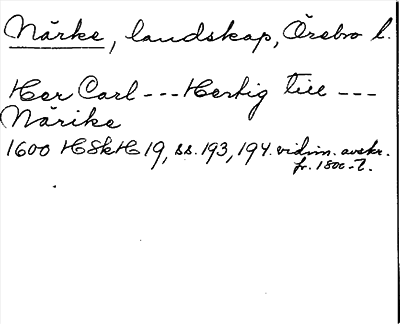 Närke, landskap, Örebro l.
Her Carl --- Hertig till ---
Närike
1600 HSkH 19, ss. 193, 194. vidim. avskr.
fr. 1800-t.